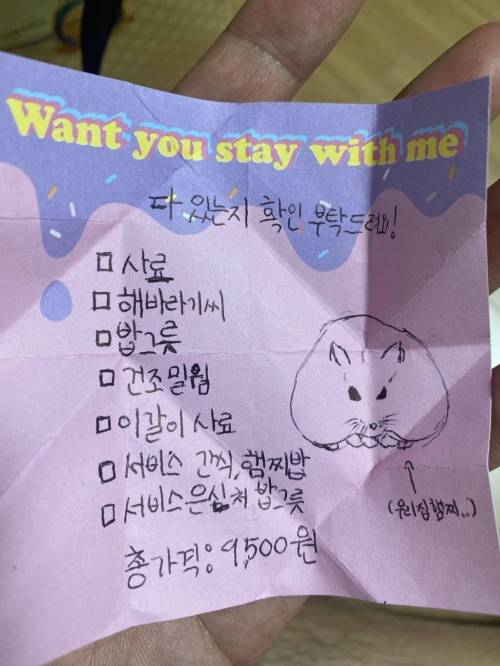 Want you stay with me
다 있는지 확인 부탁드려요!
□ 사료
□ 해바라기씨
□ 밥그릇
□ 건조밀웜
□ 이갈이 사료
□ 서비스 간식, 햄찌밥
□ 서비스 은신처 밥그릇
총가격: 9,500원
(우리집햄찌..)